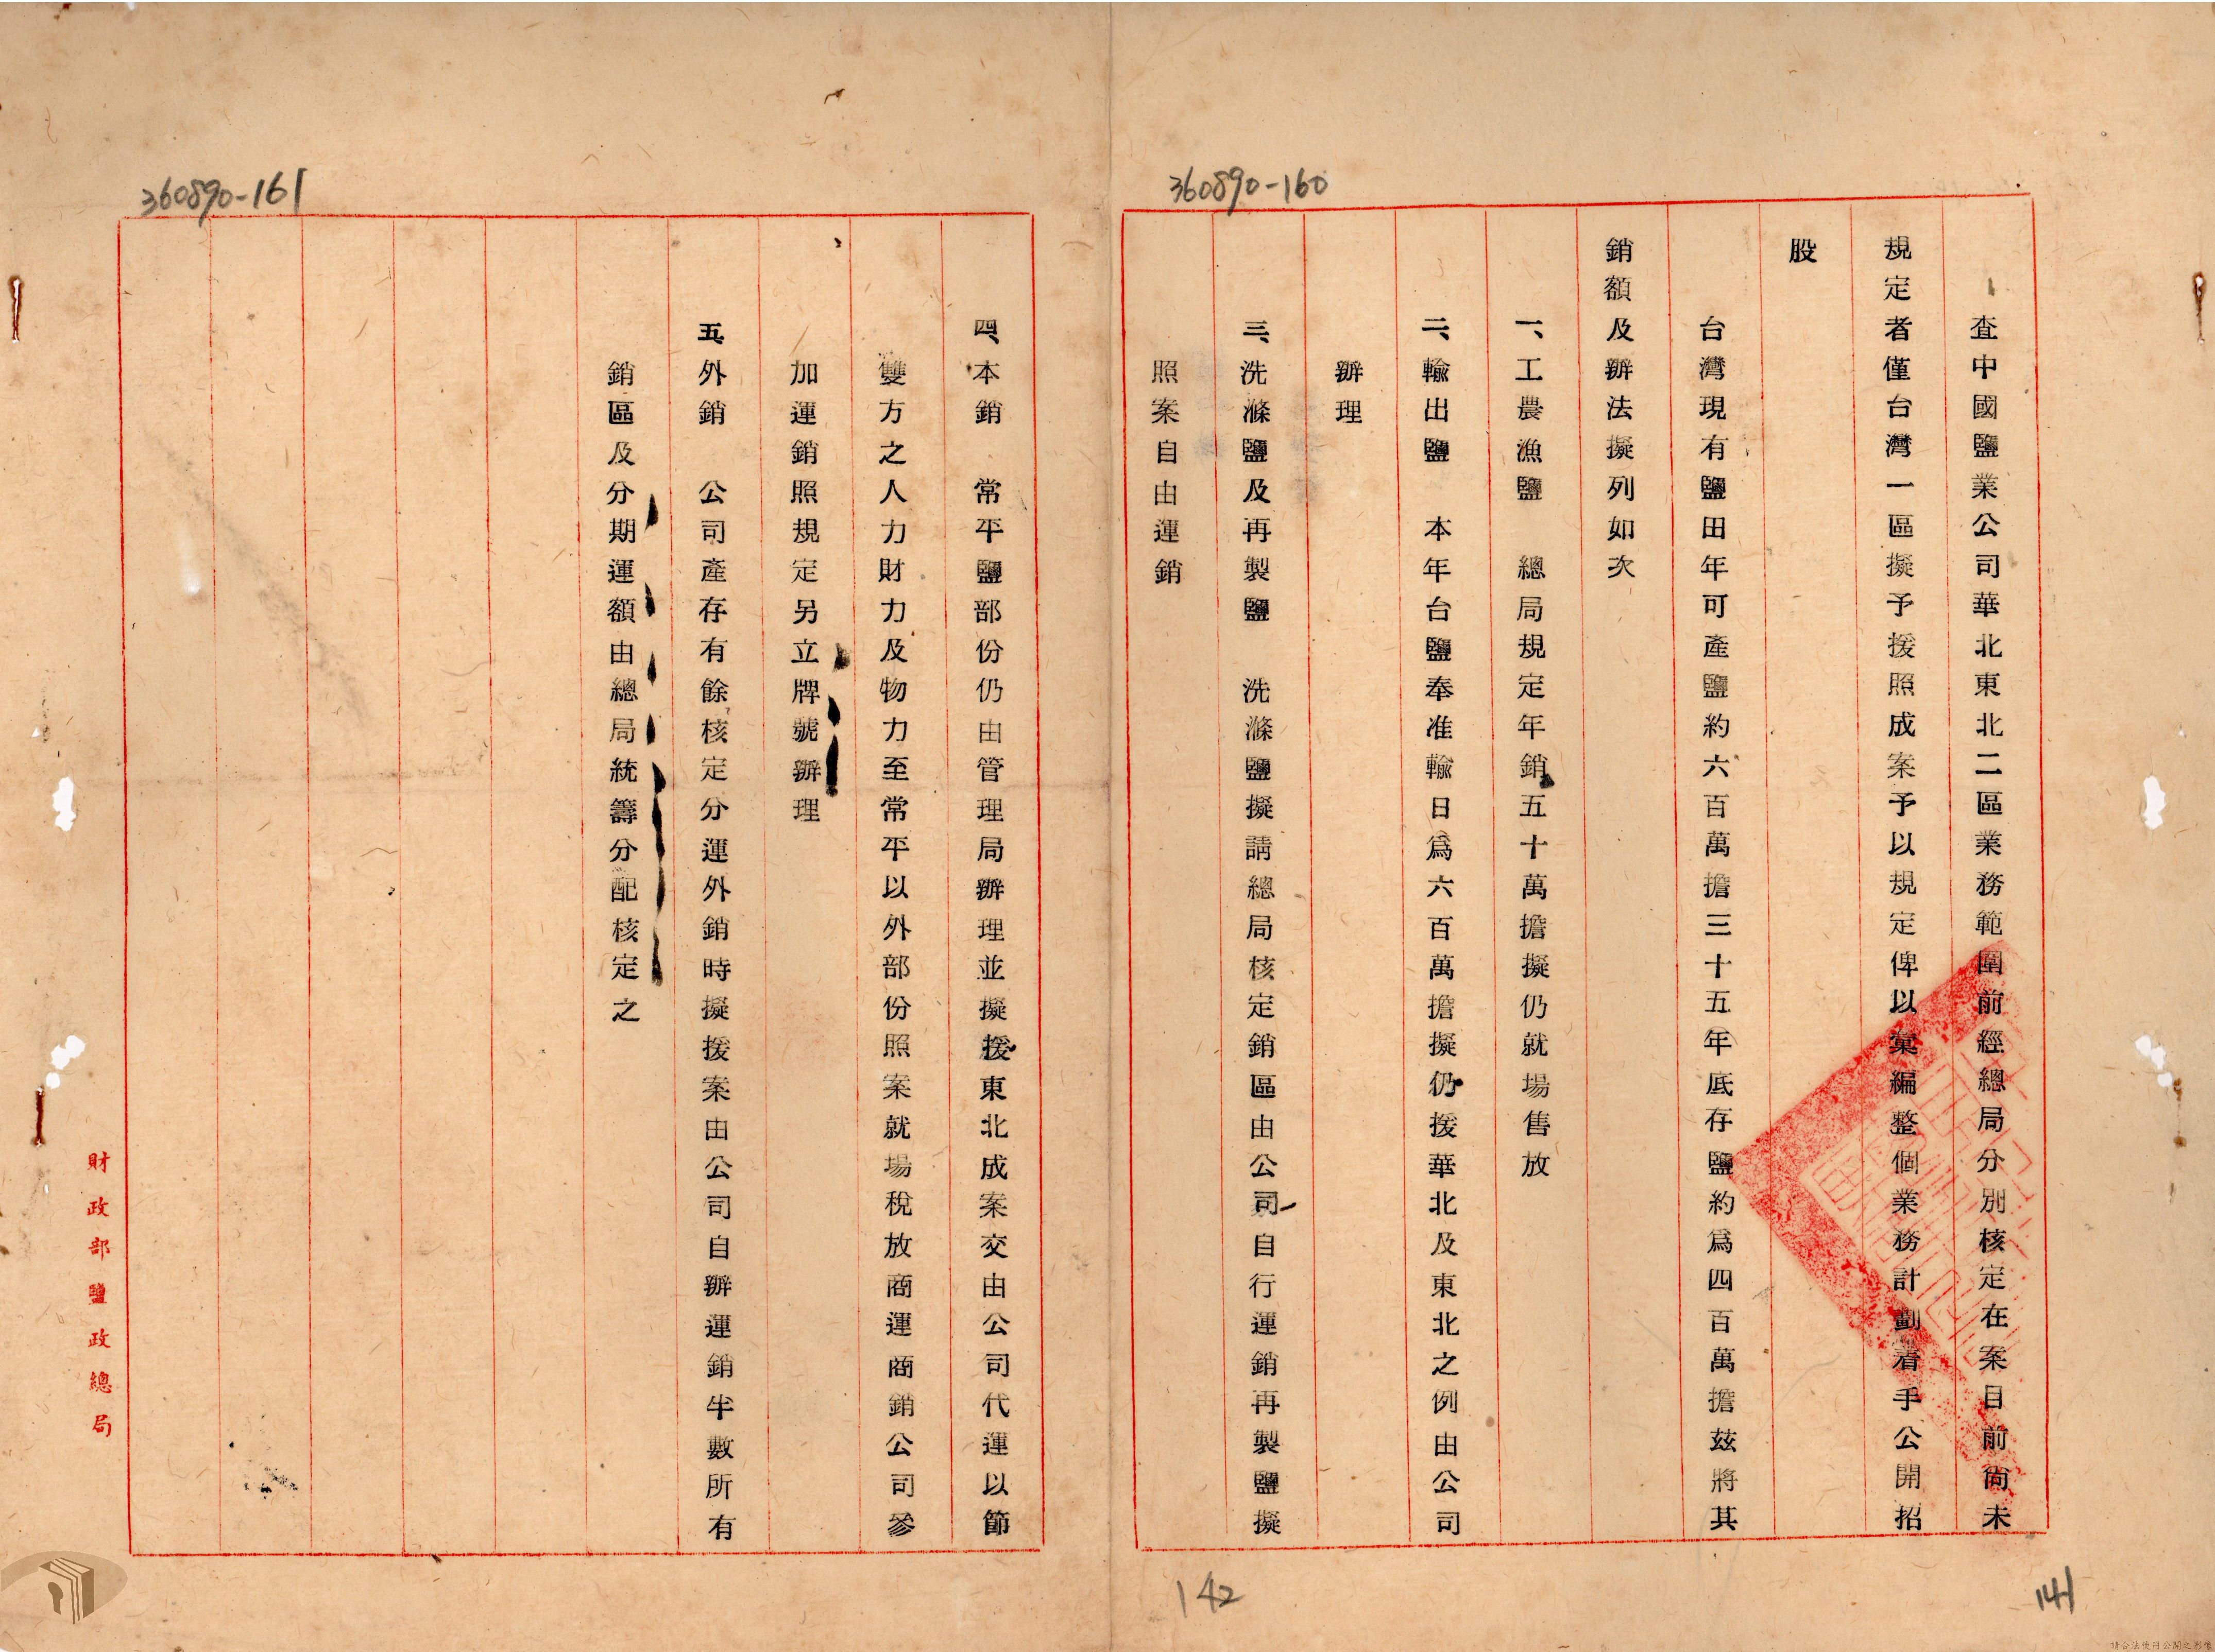 360890-160
查中國鹽業公司華北東北二區業務範圍前經總局分別核定在案目前尚未
規定者僅台灣一區擬予援照成案予以規定俾以彙編整個業務計劃着手公開招
股
台灣現有鹽田年可產鹽約六百萬擔三十五年底存鹽約為四百萬擔茲將其
銷額及辦法擬列如次
一、工農漁鹽 總局規定年銷五十萬擔擬仍就場售放
二、輸出鹽 本年台鹽奉准輸日為六百萬擔擬仍援華北及東北之例由公司
辦理
三、洗滌鹽及再製鹽 洗滌鹽擬請總局核定銷區由公司自行運銷再製鹽擬
照案自由運銷
142
141
360890-161
四、本銷 常平鹽部份仍由管理局辦理並擬援東北成案交由公司代運以節
雙方之人力財力及物力至常平以外部份照案就場稅放商運商銷公司參
加運銷照規定另立牌號辦理
五、外銷 公司產存有餘核定分運外銷時擬援案由公司自辦運銷半數所有
銷區及分期運額由總局統籌分配核定之
財政部鹽政總局
請合法使用公開之影像